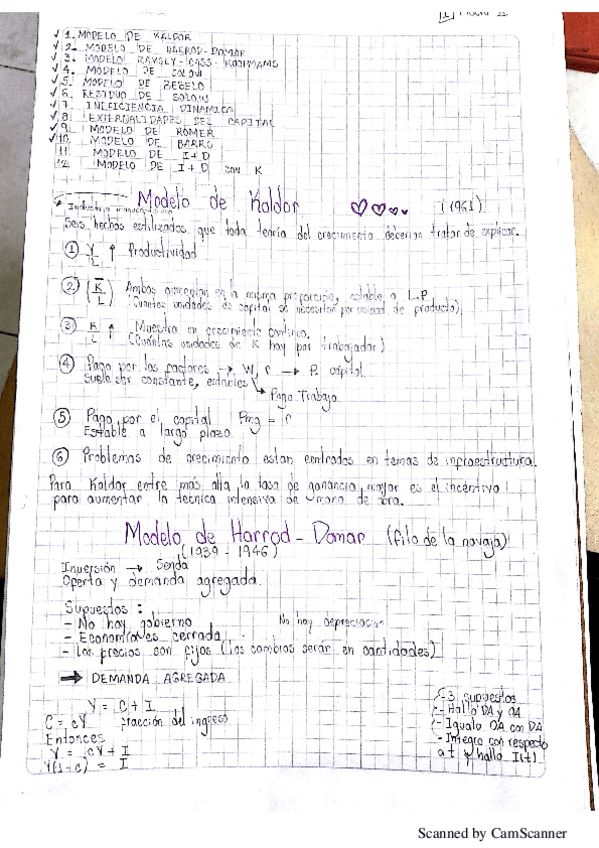 ✓ 1. MODELO DE KALDOR
✓ 2. MODELO DE HARROD-DOMAR
✓ 3. MODELO RAMSEY-CASS-KOOPMANS
✓ 4. MODELO DE SOLOW
✓ 5. MODELO DE REBELO
✓ 6. RESIDUO DE SOLOW
✓ 7. INEFICIENCIA DINAMICA
✓ 8 EXTERNALIDADES DEL CAPITAL
✓ 9. MODELO DE ROMER
✓ 10. MODELO DE BARRO
11 MODELO DE I+D
12. MODELO DE I+D con K
Modelo de Kaldor (1961)
Seis hechos estilizados que toda teoría del crecimiento deberían tratar de explicar.
① Y/L ↑ Productividad
② (K/L) Ambos aumentan en la misma proporción, estable a L.P
(Cuantas unidades de capital se necesitan por unidad de producto).
③ K/L ↑ Muestra un crecimiento continuo.
(Cuántas unidades de K hay por trabajador)
④ Pago por los factores → W, r → P. capital.
Suele ser constante, estables ↳ Pago Trabajo.
⑤ Pago por el capital Pmg = r
Estable a largo plazo
⑥ Problemas de crecimiento estan centrados en temas de infraestructura.
Para Kaldor entre más alta la tasa de ganancia, mayor es el incentivo
para aumentar la tecnica intensiva de mano de obra.
Modelo de Harrod-Domar (filo de la navaja)
(1939 - 1946)
Inversión → Senda
Oferta y demanda agregada.
Supuestos :
- No hay gobierno No hay depreciación
- Economía es cerrada
- Los precios son fijos (Los cambios serán en cantidades)
➡ DEMANDA AGREGADA
Y = C + I
C = cY fracción del ingreso
Entonces
Y = cY + I
Y(1-c) = I
3 supuestos
- Hallo DA y OA
- Igualo OA con DA
- Integro con respecto
a t y hallo I(t)
Scanned by CamScanner